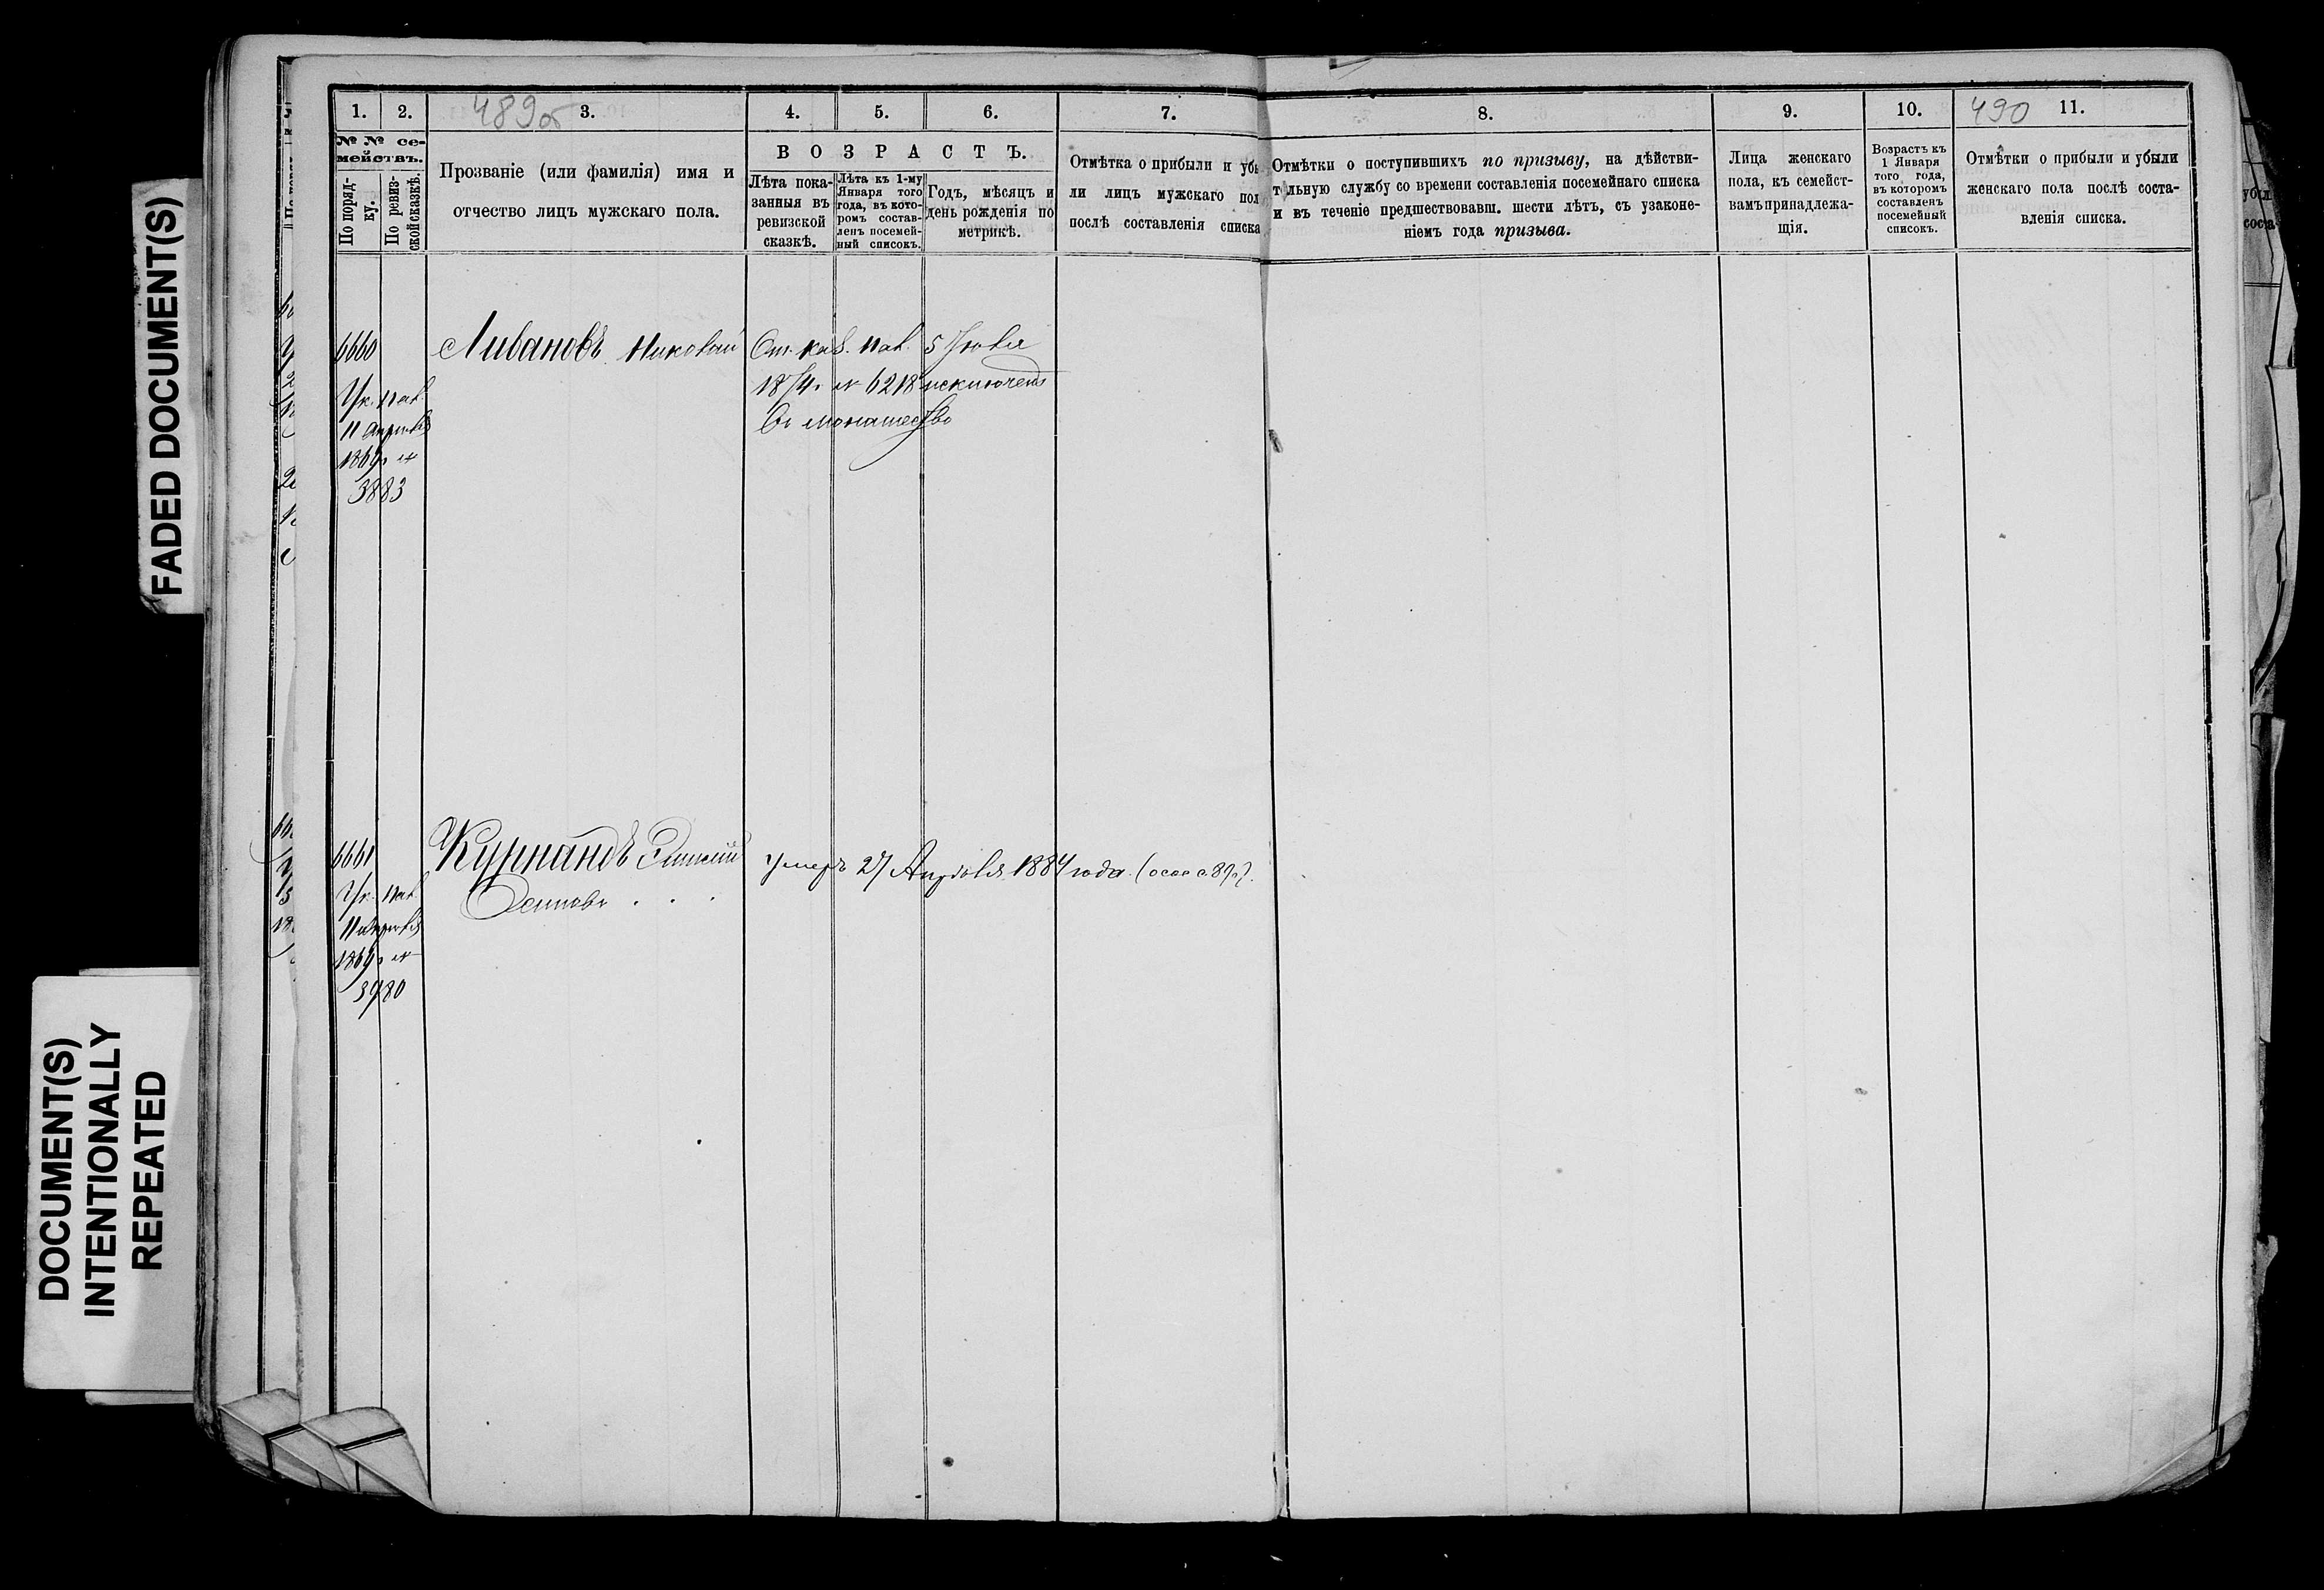 FADED DOCUMENT(S)
DOCUMENT(S)
INTENTIONALLY
REPEATED
489об
490
1. 2. 3. 4. 5. 6. 7. 8. 9. 10. 11.
№ № се-
мействъ.
По поряд-
ку.
По ревиз-
ской сказкѣ.
Прозваніе (или фамилія) имя и
отчество лицъ мужскаго пола.
ВОЗРАСТЪ.
Лѣта пока-
занныя въ
ревизской
сказкѣ.
Лѣта къ 1-му
Января того
года, въ кото-
ромъ состав-
ленъ посемей-
ный списокъ.
Годъ, мѣсяцъ и
день рожденія по
метрикѣ.
Отмѣтка о прибыли и убы
ли лицъ мужскаго пол
послѣ составленія списка
Отмѣтки о поступившихъ по призыву, на дѣйстви-
тельную службу со времени составленія посемейнаго списка
и въ теченіе предшествовавш. шести лѣтъ, съ узаконе-
ніемъ года призыва.
Лица женскаго
пола, къ семейст-
вамъ принадлежа-
щія.
Возрастъ къ
1 Января
того года,
въ которомъ
составленъ
посемейный
списокъ.
Отмѣтки о прибыли и убыли
женскаго пола послѣ соста-
вленія списка.
6660 Ливановъ Николай
Ук. пал.
11 Апрѣля
1869г №
3883
5 Іюля
1874г № 6218 исключенъ
въ монашество
6661
Осиповъ
Умеръ 27 Апрѣля 1884 года
Ук. пал.
11 Апрѣля
1869г №
3980